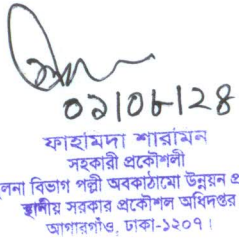 ০১/০৮/২৪
ফাহমিদা শারমিন
সহকারী প্রকৌশলী
বিভাগ পল্লী অবকাঠামো উন্নয়ন
স্থানীয় সরকার প্রকৌশল অধিদপ্তর
আগারগাঁও, ঢাকা-১২০৭।